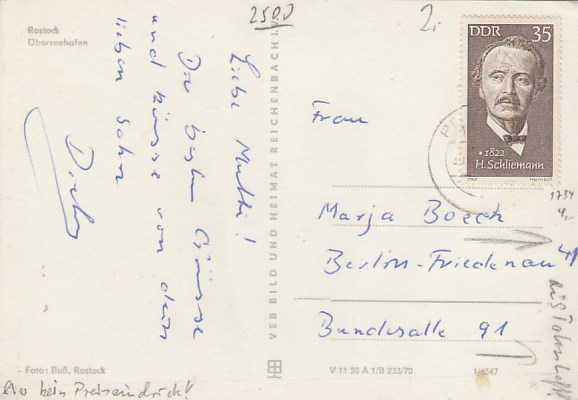 Rostock
Überseehafen
2500
2.-
DDR 35
* 1822
H. Schliemann
Liebe Mutti!
Die besten Grüsse
und Küsse von deinem
lieben Sohn
Frau
Marja Boeck
Berlin-Friedenau 41
Bundesallee 91
VEB BILD UND HEIMAT REICHENBACH I.V.
Foto: Buß, Rostock
V 11 50 A 1/B 233/70
1/6547
1734
4,-